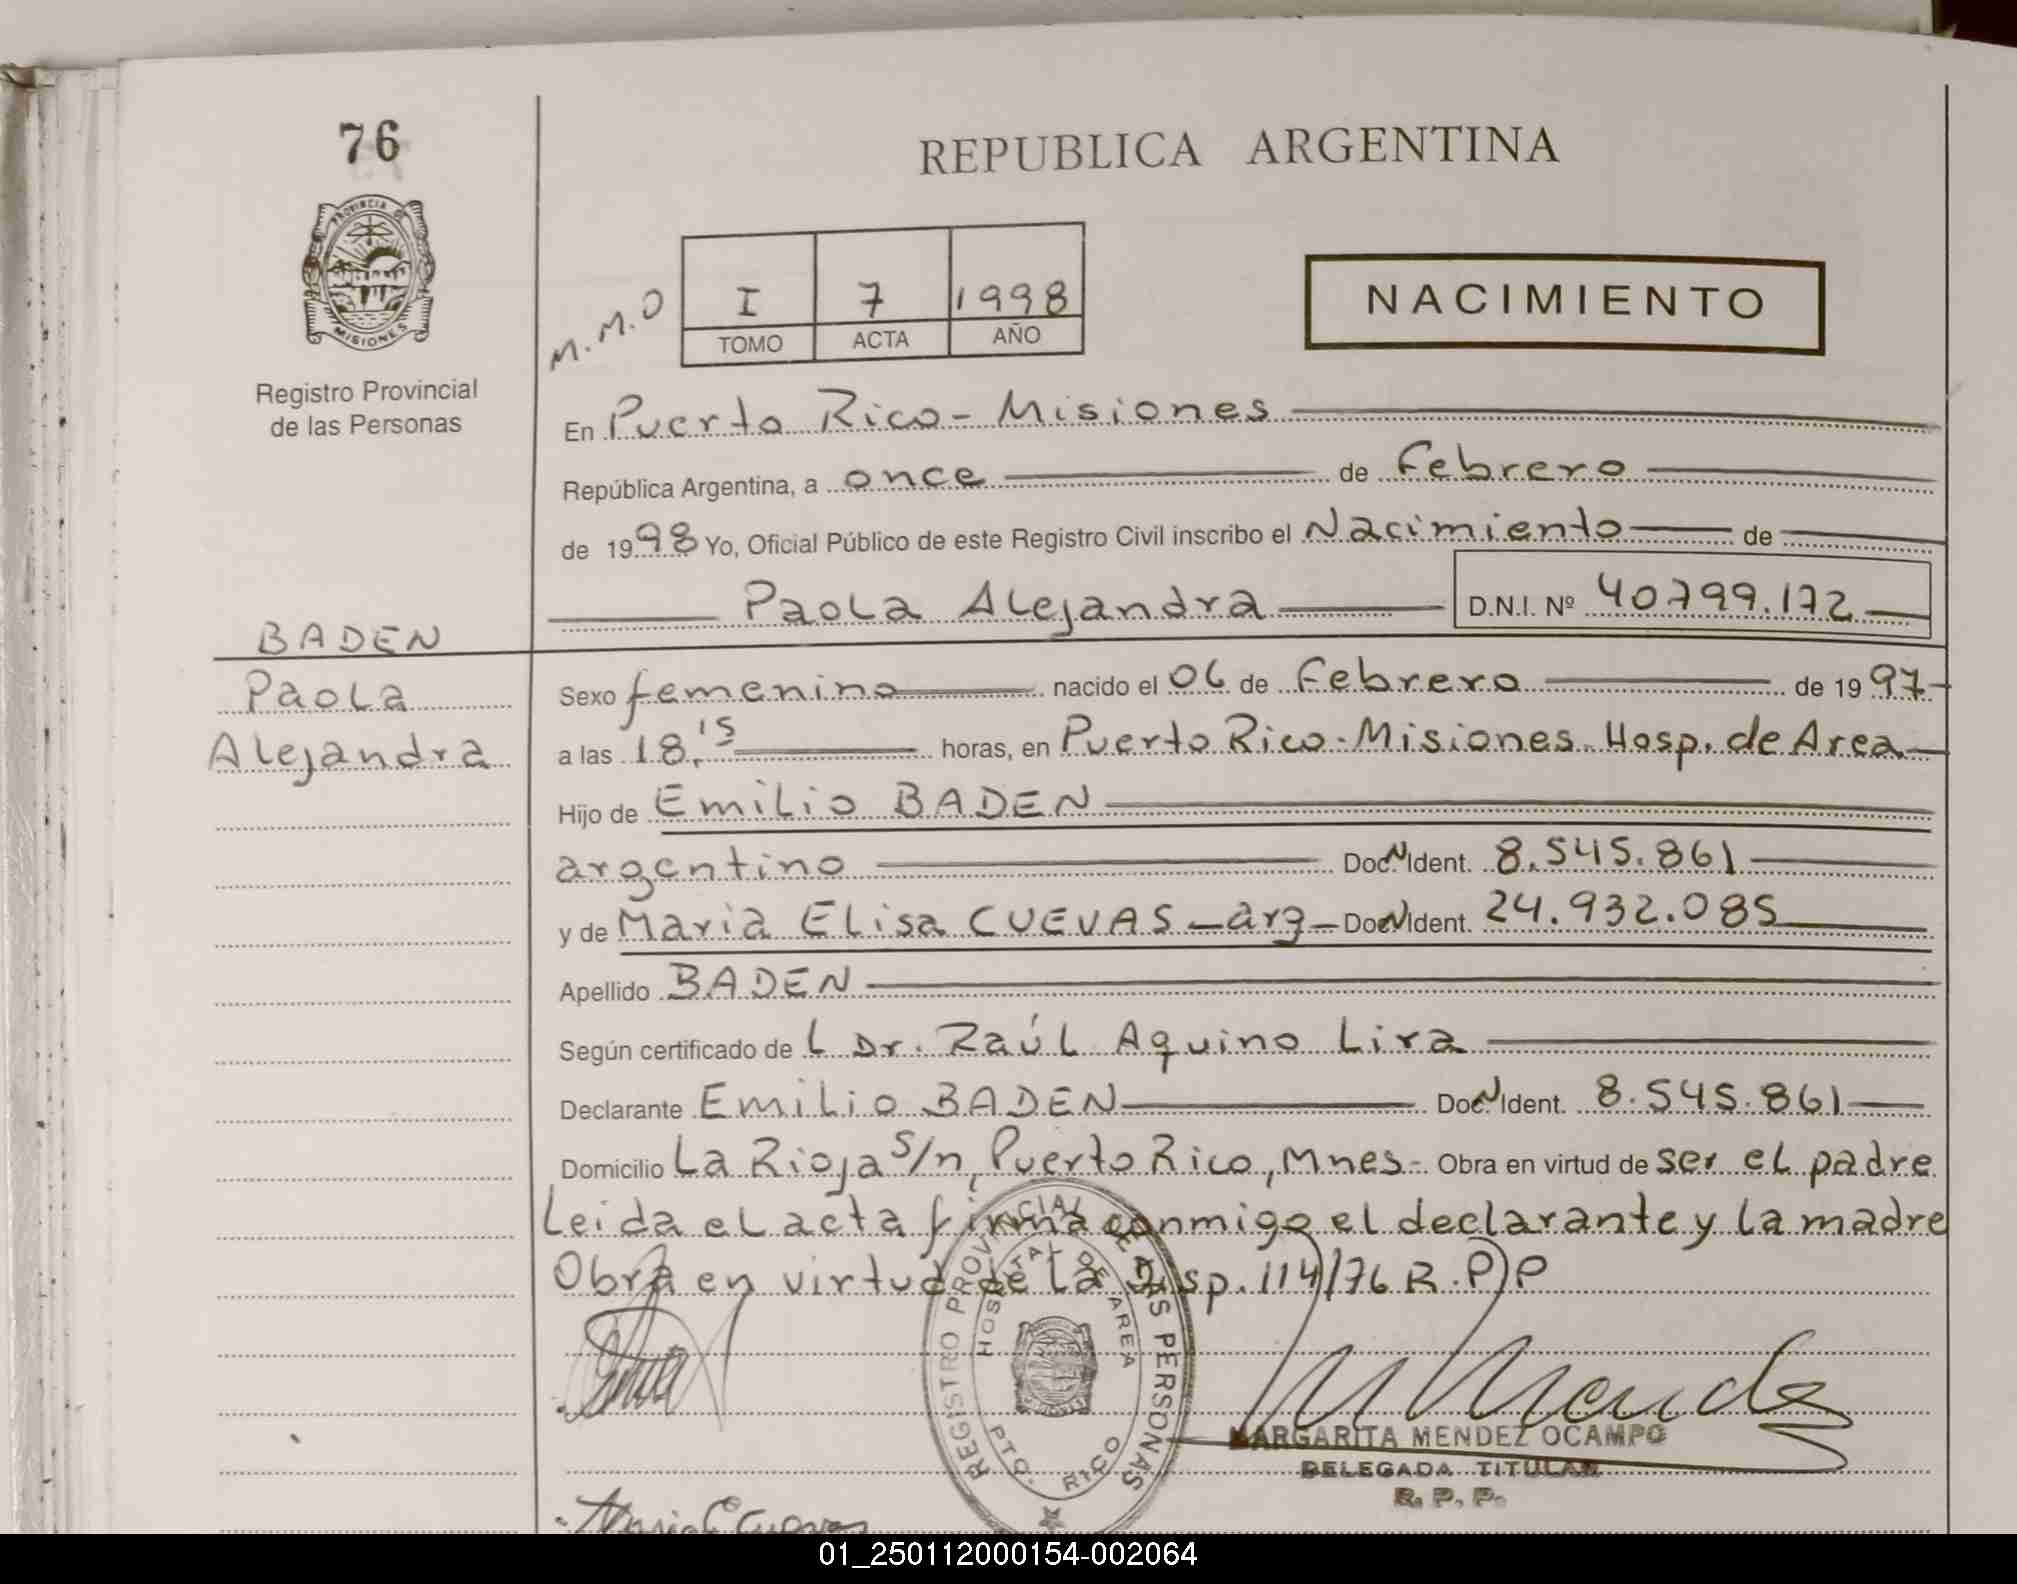 76
REPUBLICA ARGENTINA
PROVINCIA DE
MISIONES
Registro Provincial
de las Personas
M.M.O
I 7 1998
TOMO ACTA AÑO
NACIMIENTO
En Puerto Rico - Misiones
República Argentina, a once de Febrero
de 1998 Yo, Oficial Público de este Registro Civil inscribo el Nacimiento de
Paola Alejandra D.N.I. Nº 40799.172
BADEN
Paola
Alejandra
Sexo femenino nacido el 06 de Febrero de 1997
a las 18,15 horas, en Puerto Rico - Misiones - Hosp. de Area
Hijo de Emilio BADEN
argentino Doc. N Ident. 8.545.861
y de Maria Elisa CUEVAS - arg - Doc. N Ident. 24.932.085
Apellido BADEN
Según certificado de l Dr. Raúl Aquino Lira
Declarante Emilio BADEN Doc. N Ident. 8.545.861
Domicilio La Rioja s/n, Puerto Rico, Mnes - Obra en virtud de ser el padre
Leida el acta firma conmigo el declarante y la madre
Obra en virtud de la Disp. 114/76 R.P.P
REGISTRO PROVINCIAL DE LAS PERSONAS
HOSPITAL DE AREA
PTO. RICO
MARGARITA MENDEZ OCAMPO
DELEGADA TITULAR
R. P. P.
Maria E Cuevas
01_250112000154-002064